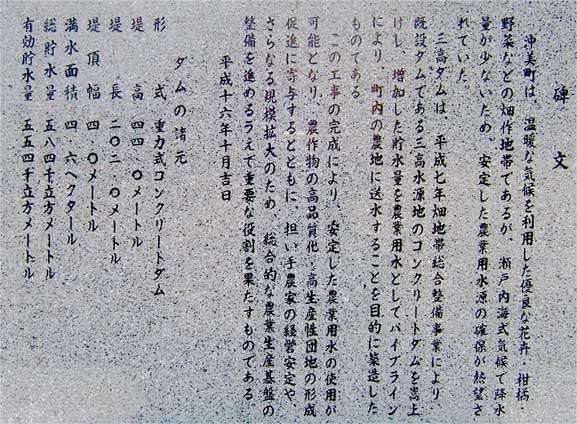 碑文
沖美町は、温暖な気候を利用した優良な花卉・柑橘・
野菜などの畑作地帯であるが、瀬戸内海式気候で降水
量が少ないため、安定した農業用水源の確保が熱望さ
れていた。
三高ダムは、平成七年畑地帯総合整備事業により、
既設ダムである三高水源地のコンクリートダムを嵩上
げし、増加した貯水量を農業用水としてパイプライン
により、町内の農地に送水することを目的に築造した
ものである
この工事の完成により、安定した農業用水の使用が
可能となり、農作物の高品質化・高生産性団地の形成
促進に寄与するとともに、担い手農家の経営安定や、
さらなる規模拡大のため、総合的な農業生産基盤の
整備を進めるうえで重要な役割を果たすものである
平成十六年十月吉日
ダムの諸元
形式 重力式コンクリートダム
堤高 四四・〇メートル
堤長 二〇二・〇メートル
堤頂幅 四・〇メートル
満水面積 四・六ヘクタール
総貯水量 五八四千立方メートル
有効貯水量 五五四千立方メートル